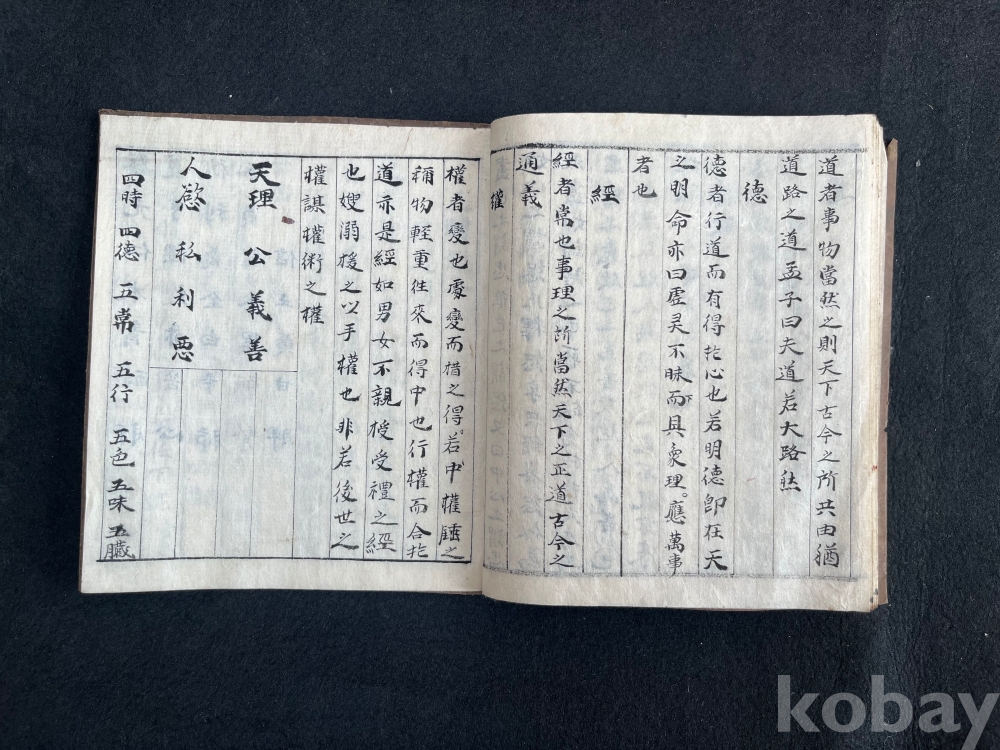 道者事物當然之則天下古今之所共由猶
道路之道孟子曰夫道若大路然
德
德者行道而有得於心也若明德卽在天
之明命亦曰虛灵不昧而具衆理應萬事
者也
經
經者常也事理之所當然天下之正道古今之
通義
權
權者變也處變而措之得若中權錘之
稱物輕重往來而得中也行權而合於
道亦是經如男女不親授受禮之經
也嫂溺援之以手權也非若後世之
權謀權術之權
天理 公 義 善
人慾 私 利 悪
四時 四德 五常 五行 五色 五味 五臟
kobay